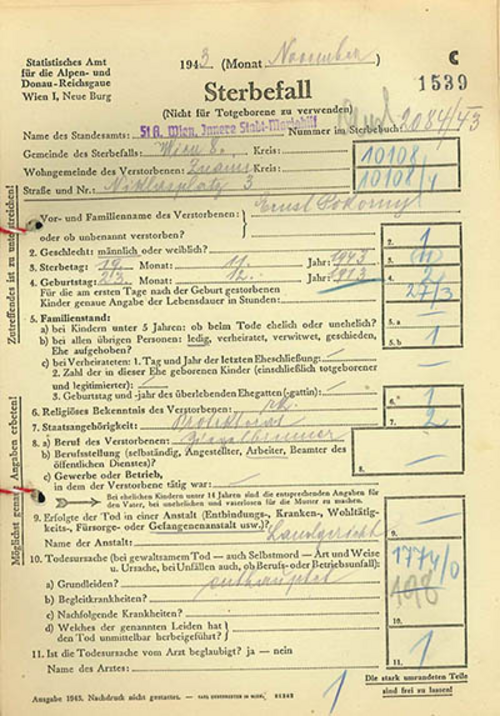 1943 (Monat November)
C
Statistisches Amt
für die Alpen- und
Donau-Reichsgaue
Wien I, Neue Burg
1539
Sterbefall
(Nicht für Totgeborene zu verwenden)
Name des Standesamts: StA. Wien, Innere Stadt-Mariahilf Nummer im Sterbebuch: 2084/43
Gemeinde des Sterbefalls: Wien 8. Kreis: 10108
Wohngemeinde des Verstorbenen: Znaim Kreis: 10108/1
Straße und Nr.: Niklasplatz 3
Zutreffendes ist zu unterstreichen!
Vor- und Familienname des Verstorbenen: Ernst Pokorny
oder ob unbenannt verstorben?
2. Geschlecht: männlich oder weiblich? 2. 1
3. Sterbetag: 19. Monat: 11. Jahr: 1943 3.
4. Geburtstag: 23. Monat: 12. Jahr: 1913 4. 2
Für die am ersten Tage nach der Geburt gestorbenen
Kinder genaue Angabe der Lebensdauer in Stunden: 27/3
5. Familienstand:
a) bei Kindern unter 5 Jahren: ob beim Tode ehelich oder unehelich? 5. a —
b) bei allen übrigen Personen: ledig, verheiratet, verwitwet, geschieden, 5. b 1
Ehe aufgehoben?
c) bei Verheirateten: 1. Tag und Jahr der letzten Eheschließung: —
2. Zahl der in dieser Ehe geborenen Kinder (einschließlich totgeborener
und legitimierter): —
3. Geburtstag und -jahr des überlebenden Ehegatten (-gattin): —
6. Religiöses Bekenntnis des Verstorbenen: rk. 6. 1
7. Staatsangehörigkeit: Protektorat 7. 2
8. a) Beruf des Verstorbenen: Ziegelbrenner
b) Berufsstellung (selbständig, Angestellter, Arbeiter, Beamter des
öffentlichen Dienstes)?
8. —
c) Gewerbe oder Betrieb,
in dem der Verstorbene tätig war: —
Möglichst genaue Angaben erbeten!
Bei ehelichen Kindern unter 14 Jahren sind die entsprechenden Angaben für
den Vater, bei unehelichen und vaterlosen für die Mutter zu machen.
9. Erfolgte der Tod in einer Anstalt (Entbindungs-, Kranken-, Wohltätig-
keits-, Fürsorge- oder Gefangenenanstalt usw.)?
Name der Anstalt: Landgericht 9. —
10. Todesursache (bei gewaltsamem Tod — auch Selbstmord — Art und Weise
u. Ursache, bei Unfällen auch, ob Berufs- oder Betriebsunfall):
1774/0
198
a) Grundleiden? enthauptet
b) Begleitkrankheiten?
c) Nachfolgende Krankheiten?
d) Welches der genannten Leiden hat
den Tod unmittelbar herbeigeführt?
10.
11. Ist die Todesursache vom Arzt beglaubigt? ja — nein 11. 1
Name des Arztes:
1
Die stark umrandeten Teile
sind frei zu lassen!
Ausgabe 1943. Nachdruck nicht gestattet.